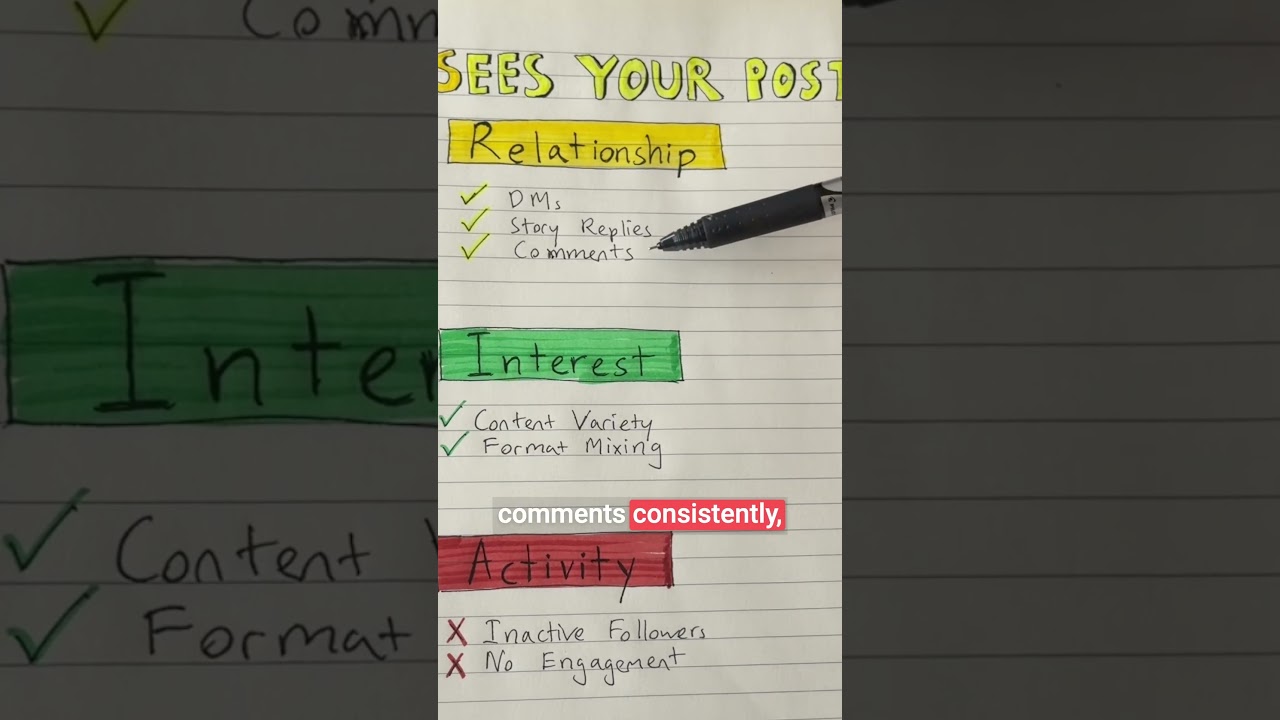 SEES YOUR POST
Relationship
DMs
Story Replies
Comments
Interest
Content Variety
Format Mixing
comments consistently,
Activity
X Inactive Followers
X No Engagement
Comm
Inter
Content
Format